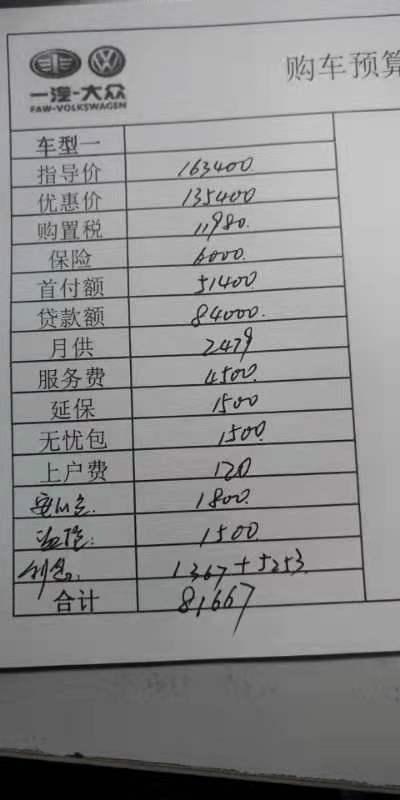 一汽-大众
FAW-VOLKSWAGEN
购车预算
车型一
指导价 163400.
优惠价 135400
购置税 11980.
保险 6000.
首付额 51400
贷款额 84000.
月供 2479
服务费 4500.
延保 1500
无忧包 1500.
上户费 120
1800.
1500.
1367+5253.
合计 81667